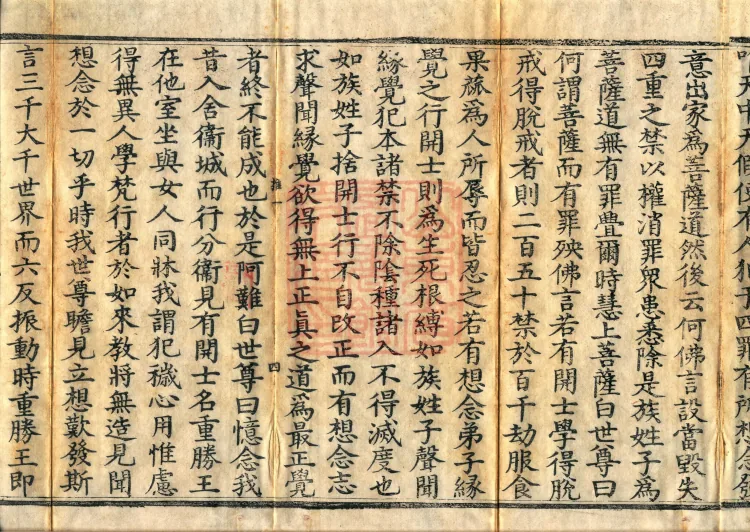 罪有所想念發
意出家爲菩薩道然後云何佛言設當毀失
四重之禁以權消罪衆患悉除是族姓子爲
菩薩道無有罪疊爾時慧上菩薩白世尊曰
何謂菩薩而有罪殃佛言若有開士學得脫
戒得脫戒者則二百五十禁於百千劫服食
果蓏爲人所辱而皆忍之若有想念弟子緣
覺之行開士則爲生死根縛如族姓子聲聞
緣覺犯本諸禁不除陰種諸入不得滅度也
如族姓子捨開士行不自改正而有想念志
求聲聞緣覺欲得無上正眞之道爲最正覺
四
者終不能成也於是阿難白世尊曰憶念我
昔入舍衞城而行分衞見有開士名重勝王
在他室坐與女人同牀我謂犯穢心用惟慮
得無異人學梵行者於如來教將無造見聞
想念於一切乎時我世尊瞻見立想歎發斯
言三千大千世界而六反振動時重勝王即